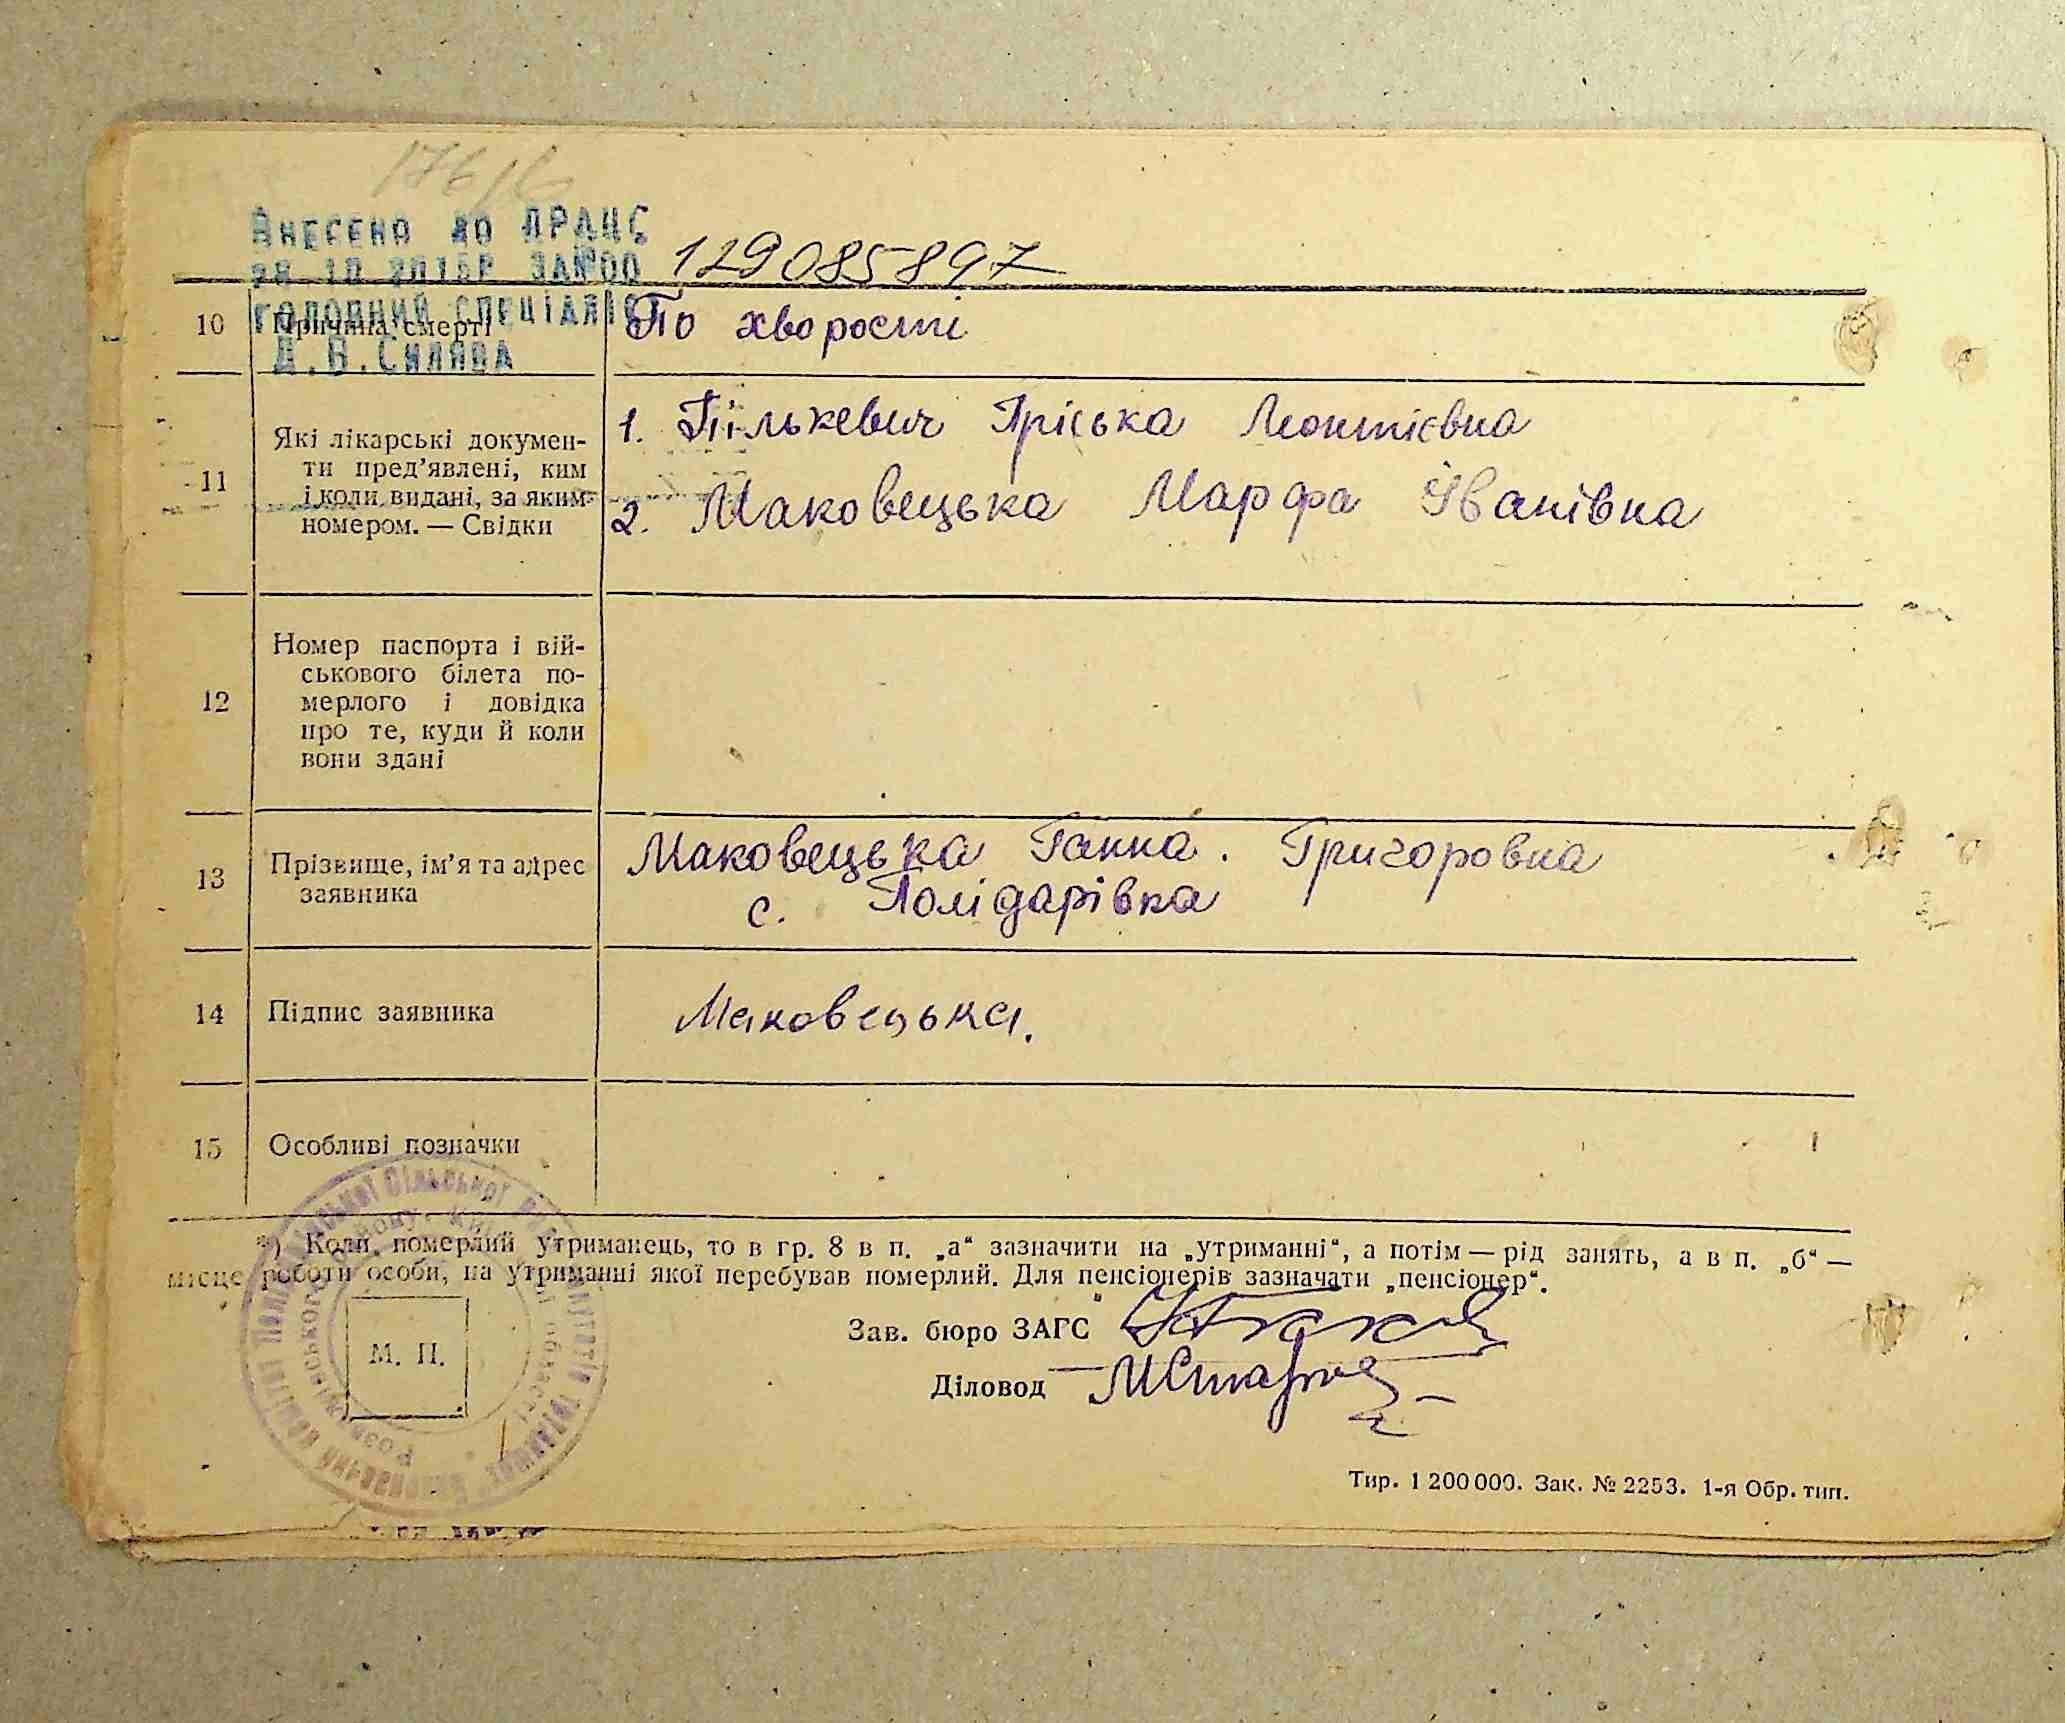 176/6
Внесено до ДРАЦС
28 10 2015р За№00 129085897
головний спеціаліс
Д.В.Силява
10 Причина смерті По хворості
11 Які лікарські докумен-
ти пред’явлені, ким
і коли видані, за яким
номером. — Свідки
1. Пількевич Гріська Леонтієвна
2. Маковецька Марфа Іванівна
12 Номер паспорта і вій-
ськового білета по-
мерлого і довідка
про те, куди й коли
вони здані
13 Прізвище, ім’я та адрес
заявника
Маковецька Ганна. Григоровна
с. Полідарівка
14 Підпис заявника Маковецька.
15 Особливі позначки
*) Коли померлий утриманець, то в гр. 8 в п. „а“ зазначити на „утриманні“, а потім — рід занять, а в п. „б“ —
місце роботи особи, на утриманні якої перебував померлий. Для пенсіонерів зазначати „пенсіонер“.
Зав. бюро ЗАГС
М. П.
Діловод
сільської ради депутатів трудящих
Виконавчий комітет
району, Київської області
Тир. 1 200 000. Зак. № 2253. 1-я Обр. тип.